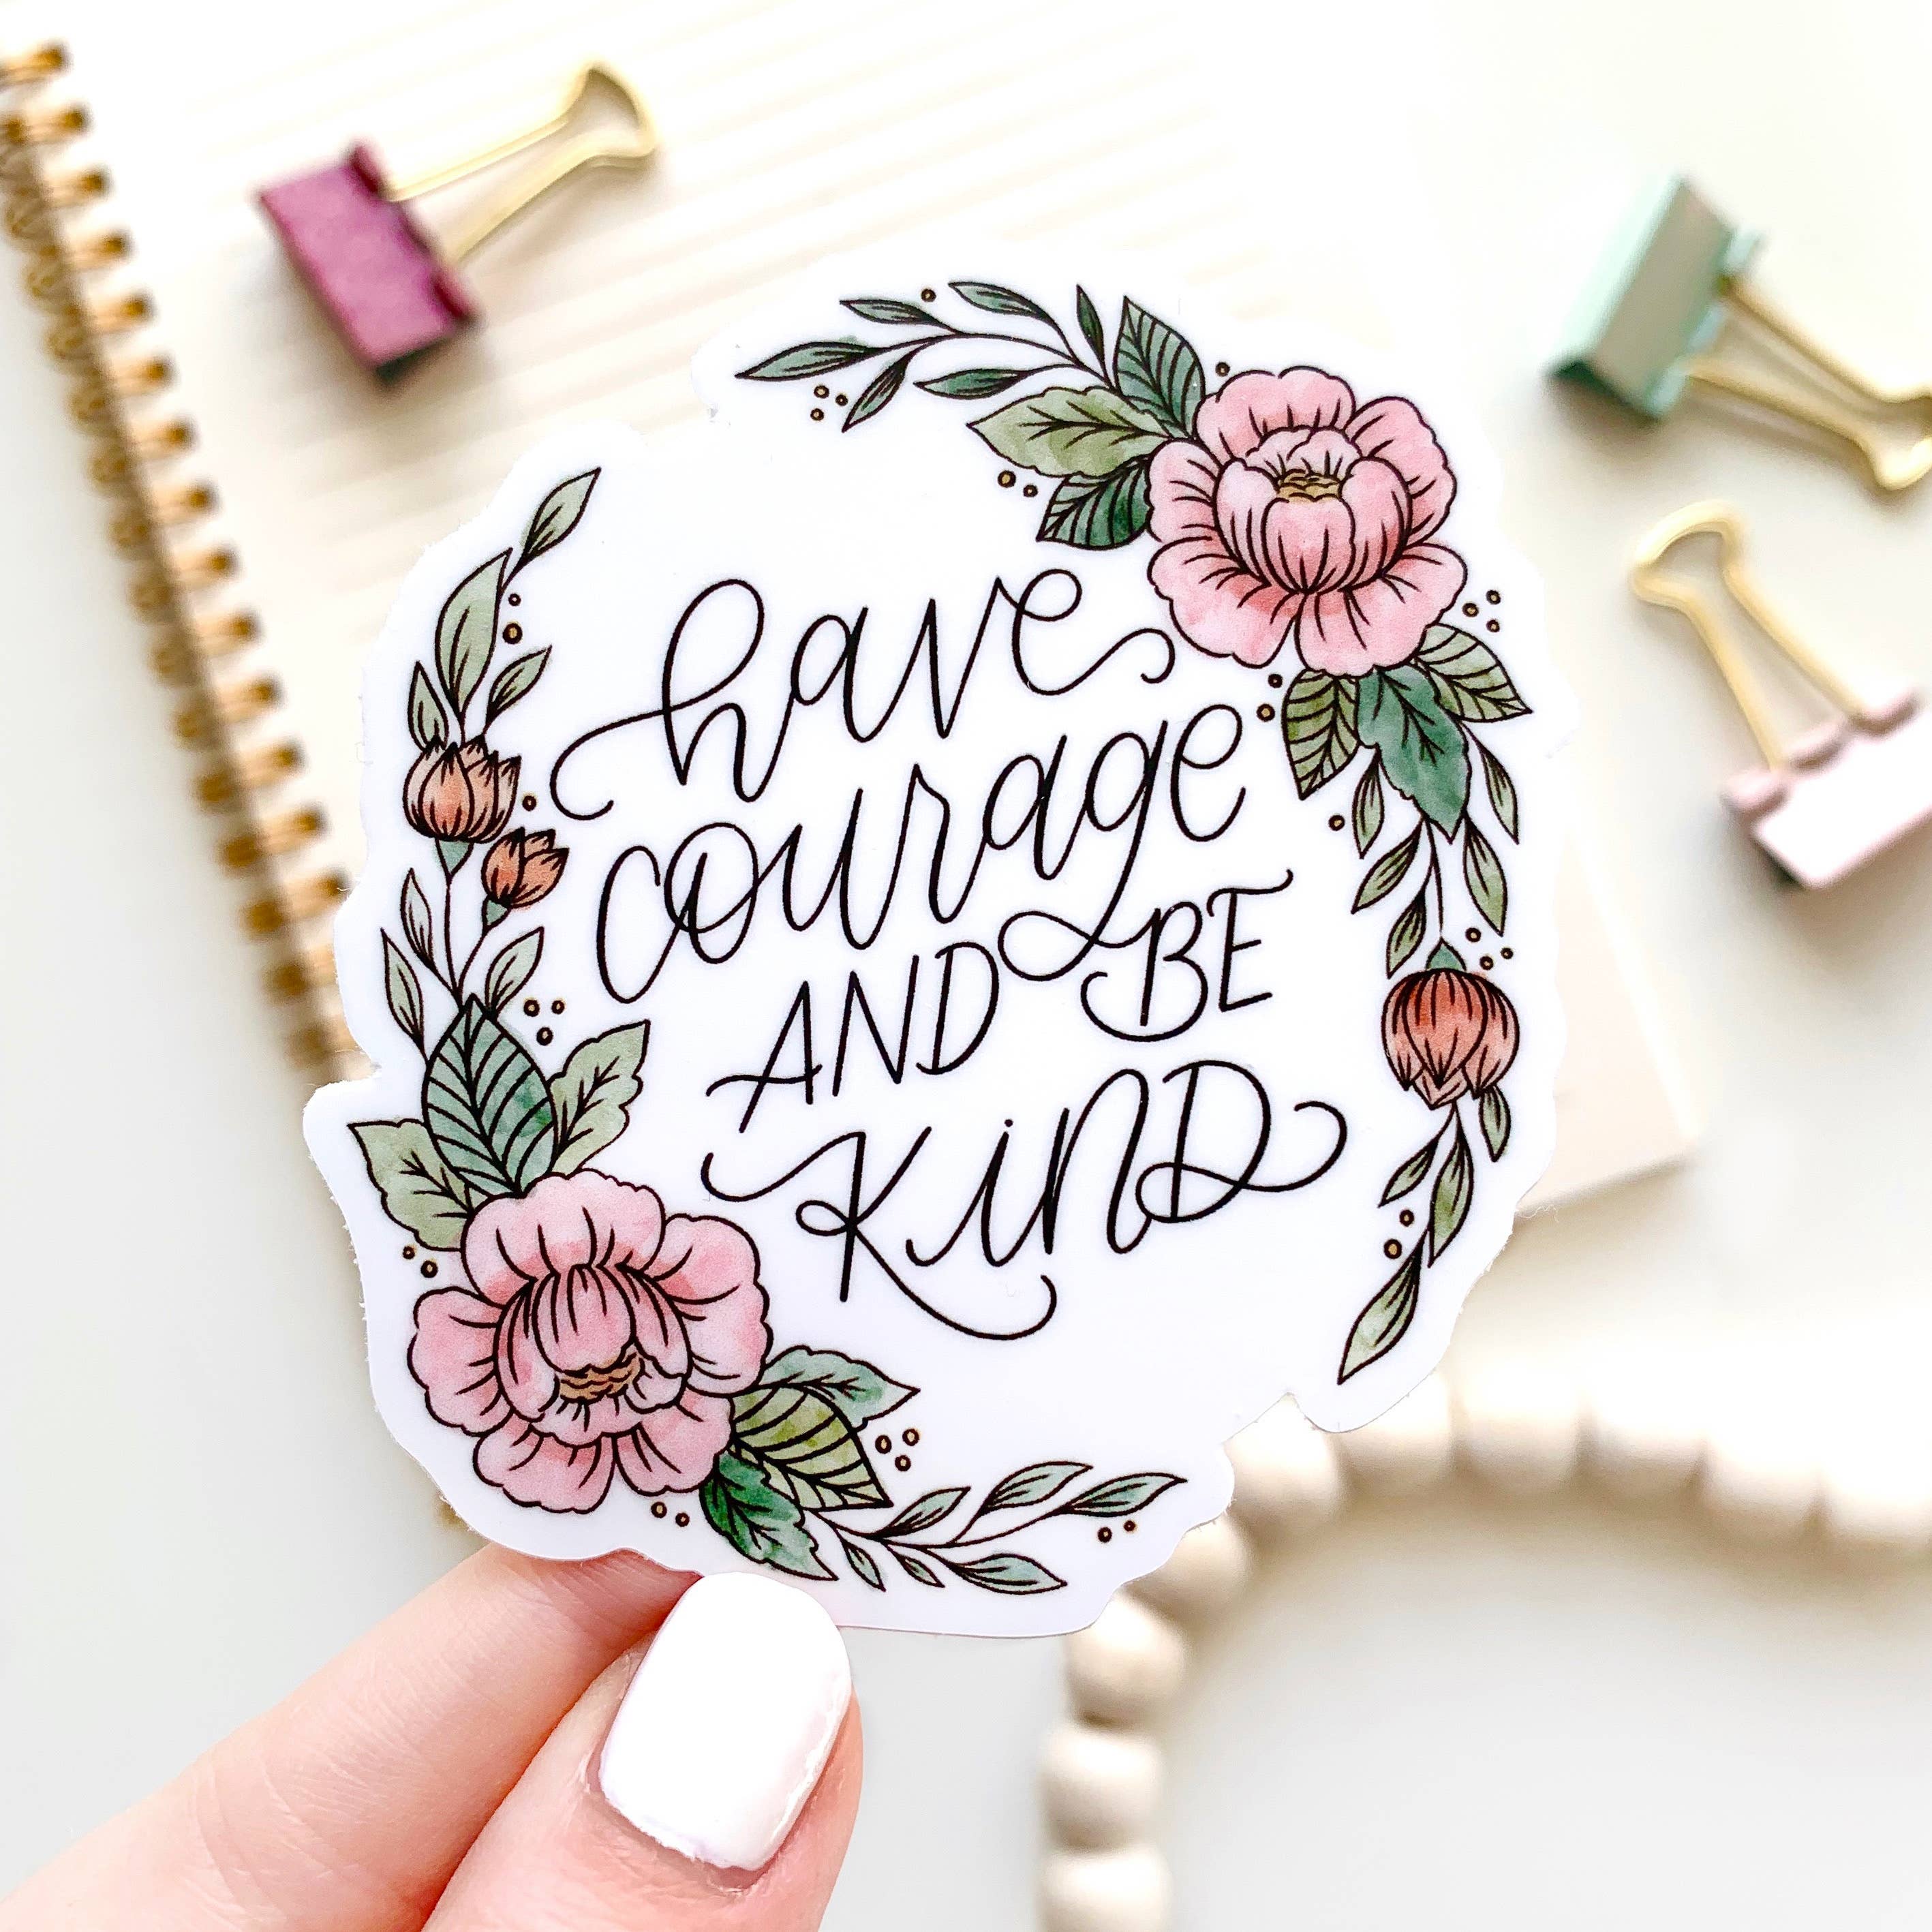 have
courage
AND BE
KinD